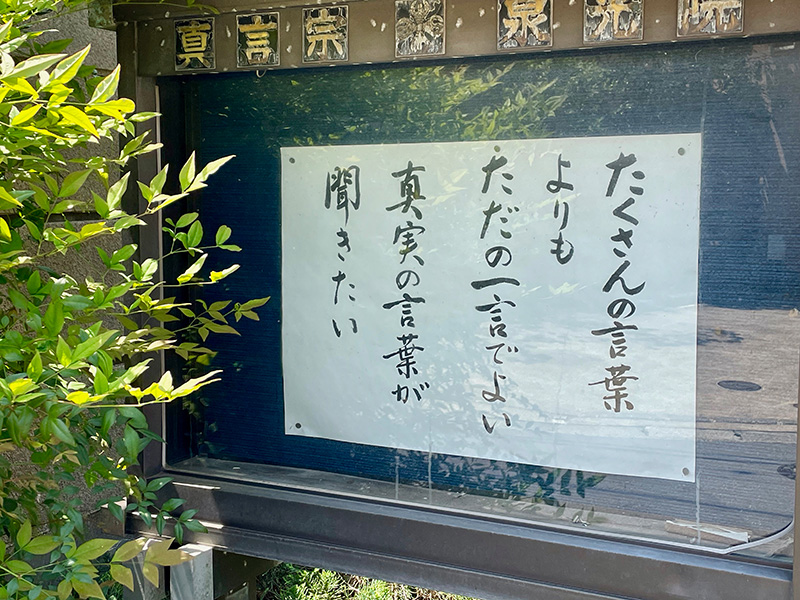 真言宗 泉涌
たくさんの言葉
よりも
ただの一言でよい
真実の言葉が
聞きたい